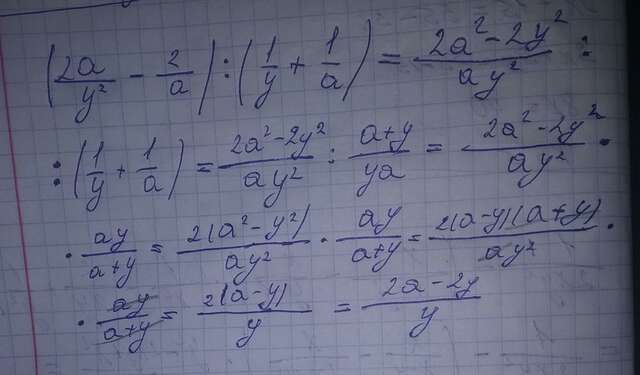 (2a/y² - 2/a) : (1/y + 1/a) = (2a² - 2y²)/(ay²) :
: (1/y + 1/a) = (2a² - 2y²)/(ay²) : (a+y)/(ya) = (2a² - 2y²)/(ay²) ·
· (ay)/(a+y) = (2(a² - y²))/(ay²) · (ay)/(a+y) = (2(a-y)(a+y))/(ay²) ·
· (ay)/(a+y) = (2(a-y))/y = (2a - 2y)/y